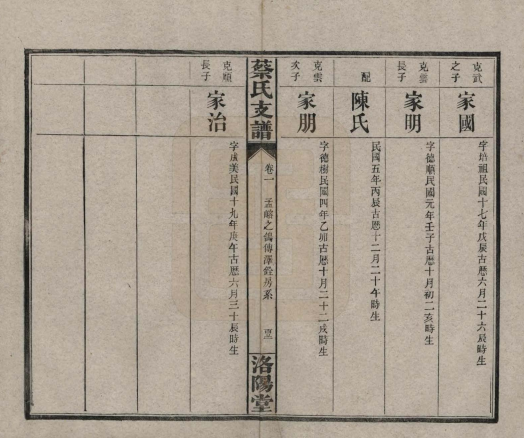 克武之子
家國
字培祖民國十七年戊辰古曆六月二十六辰時生
克雲長子
家明
字德順民國元年壬子古曆十月初二亥時生
配
陳氏
民國五年丙辰古曆十二月二十午時生
克雲次子
家朋
字德樹民國四年乙卯古曆十月二十二戌時生
蔡氏支譜
卷一
房系
洛陽堂
克順長子
家治
字成美民國十九年庚午古曆六月三十辰時生